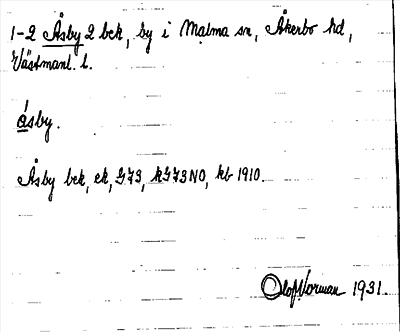 1-2 Åsby 2 bek, by i Malma sn, Åkerbo hd,
Västmanl. l.
åsby.
Åsby bek, ek, G73, kG73NO, kb 1910.
Olof Norman 1931.